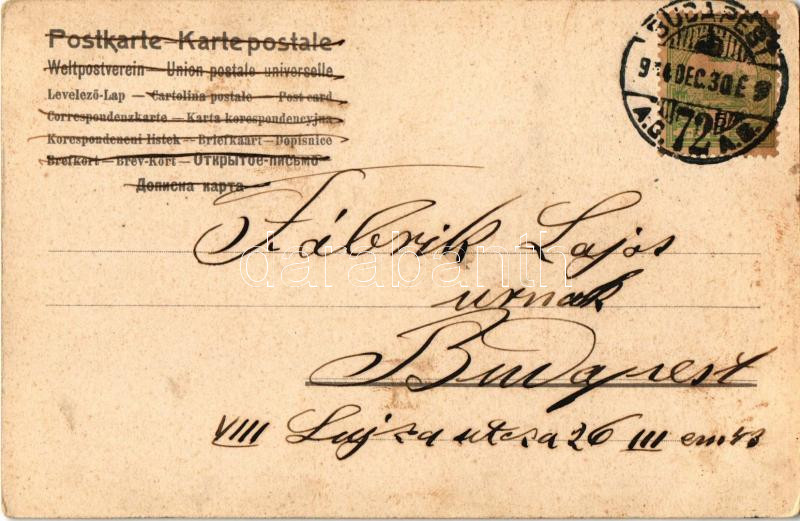 Postkarte — Karte postale
Weltpostverein — Union postale universelle
Levelező-Lap — Cartolina postale — Post card
Correspondenzkarte — Karta korespondencyjna
Korespondencni listek — Briefkaart — Dopisnice
Brefkort — Brev-Kort — Открытое-письмо
Дописна карта
BUDAPEST
904 DEC. 30
72
Fábrik Lajos
urnak
Budapest
VIII Lujza utcza 26 III em
darabanth